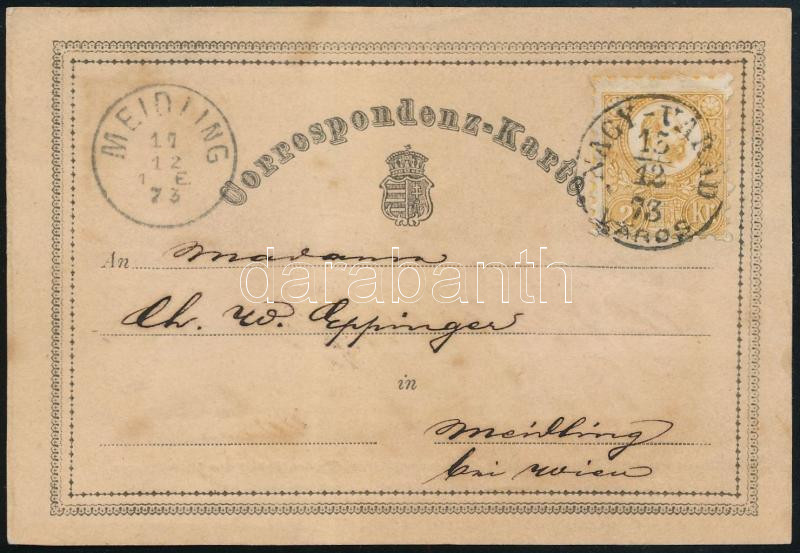 MEIDLING
17
12
1 E
73
Correspondenz-Karte.
NAGY-VARAD
15
12
73
VAROS
2 Kr
An Madame
darabanth
Ch. W. Eppinger
in
Meidling
bei Wien